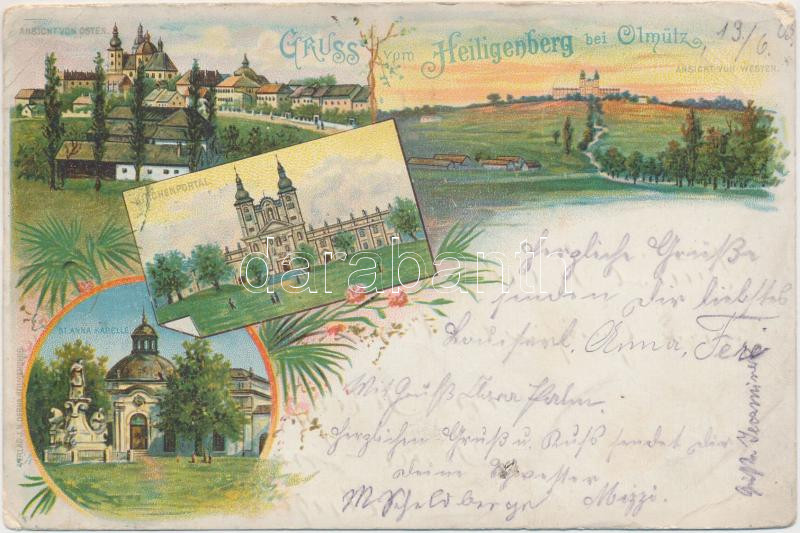 ANSICHT VON OSTEN.
GRUSS vom Heiligenberg bei Olmütz
13/6.
ANSICHT VON WESTEN.
KIRCHENPORTAL.
ST. ANNA KAPELLE.
darabanth
Herzliche Grüße
senden dir liebstes
Anna, Fere
Mit Gruß Clara Palm.
Herzlichen Gruß u. Kuß sendet dir
deine Schwester
Mizzi.